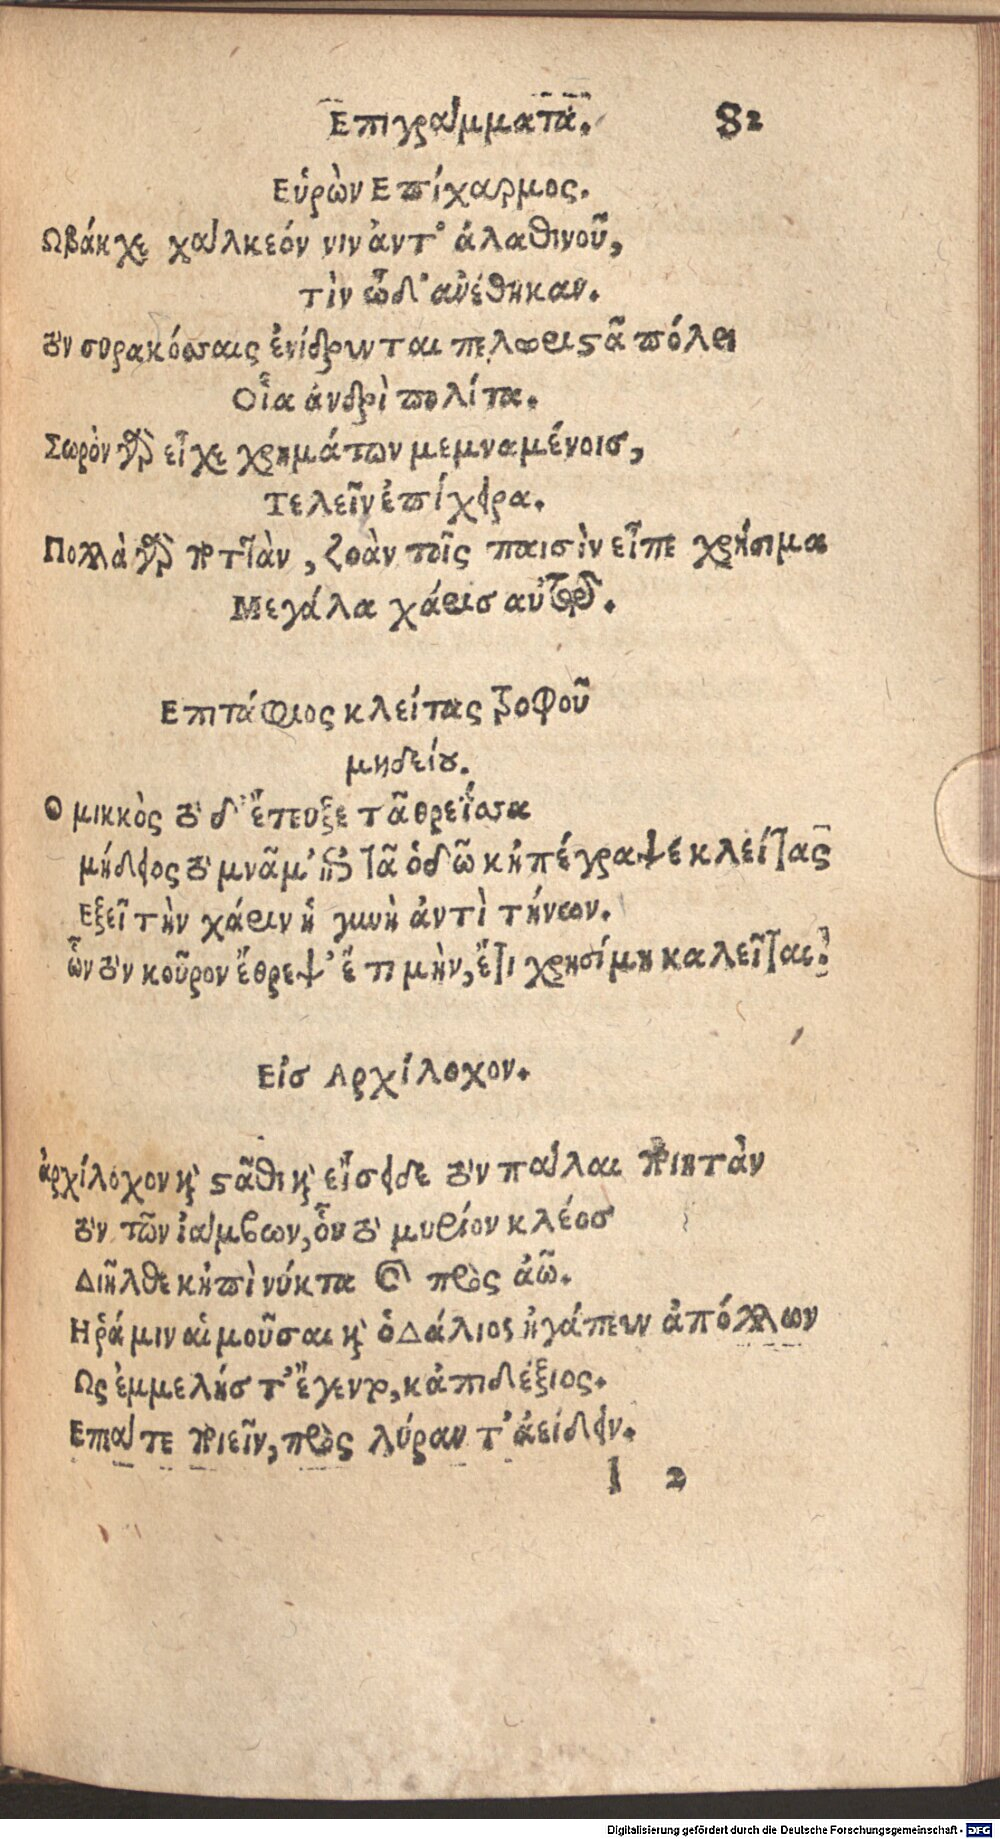 Επιγράμματα. 82
Εὑρὼν Επίχαρμος.
Ωβάκχε χάλκεόν νιν ἀντ' ἀλαθινοῦ,
τὶν ὧδ' ἀνέθηκαν.
τὸν συρακόσσαις ἐνίδρυνται πελωριστᾶ πόλει
Οἷα ἀνδρὶ πολίτα.
Σωρὸν γὰρ εἶχε χρημάτων μεμναμένοις,
Τελεῖν ἐπίχειρα.
Πολλὰ γὰρ ποττὰν, ζοὰν τοῖς παισὶν εἶπε χρήσιμα
Μεγάλα χάρις αὐτῷ.
Επιτάφιος κλείτας τροφοῦ
μηδείου.
Ο μικκὸς τόδ' ἔτευξε τᾶ θρεΐσσα
μήδειος τὸ μνᾶμ' ἐπὶ τᾶ ὁδῶ κἠπέγραψε κλείτας
Εξεῖ τὴν χάριν ἡ γυνὴ ἀντὶ τήνεων.
ὧν τὸν κοῦρον ἔθρεψ' ἔτι μὴν, ἔτι χρησίμη καλεῖται.
Εἰς Αρχίλοχον.
ἀρχίλοχον καὶ στᾶθι καὶ εἴσιδε τὸν πάλαι ποιητὰν
τὸν τῶν ἰάμβων, ὃν τὸ μυρίον κλέος
Διῆλθε κἠπὶ νύκτα καὶ πρὸς ἀῶ.
Ηῥά μιν αἱ μοῦσαι καὶ ὁ Δάλιος ἠγάπευν ἀπόλλων
Ως ἐμμελής τ' ἔγεντο, κἀπιδέξιος.
Επεάτε ποιεῖν, πρὸς λύραν τ' ἀείδειν.
l 2
Digitalisierung gefördert durch die Deutsche Forschungsgemeinschaft - DFG